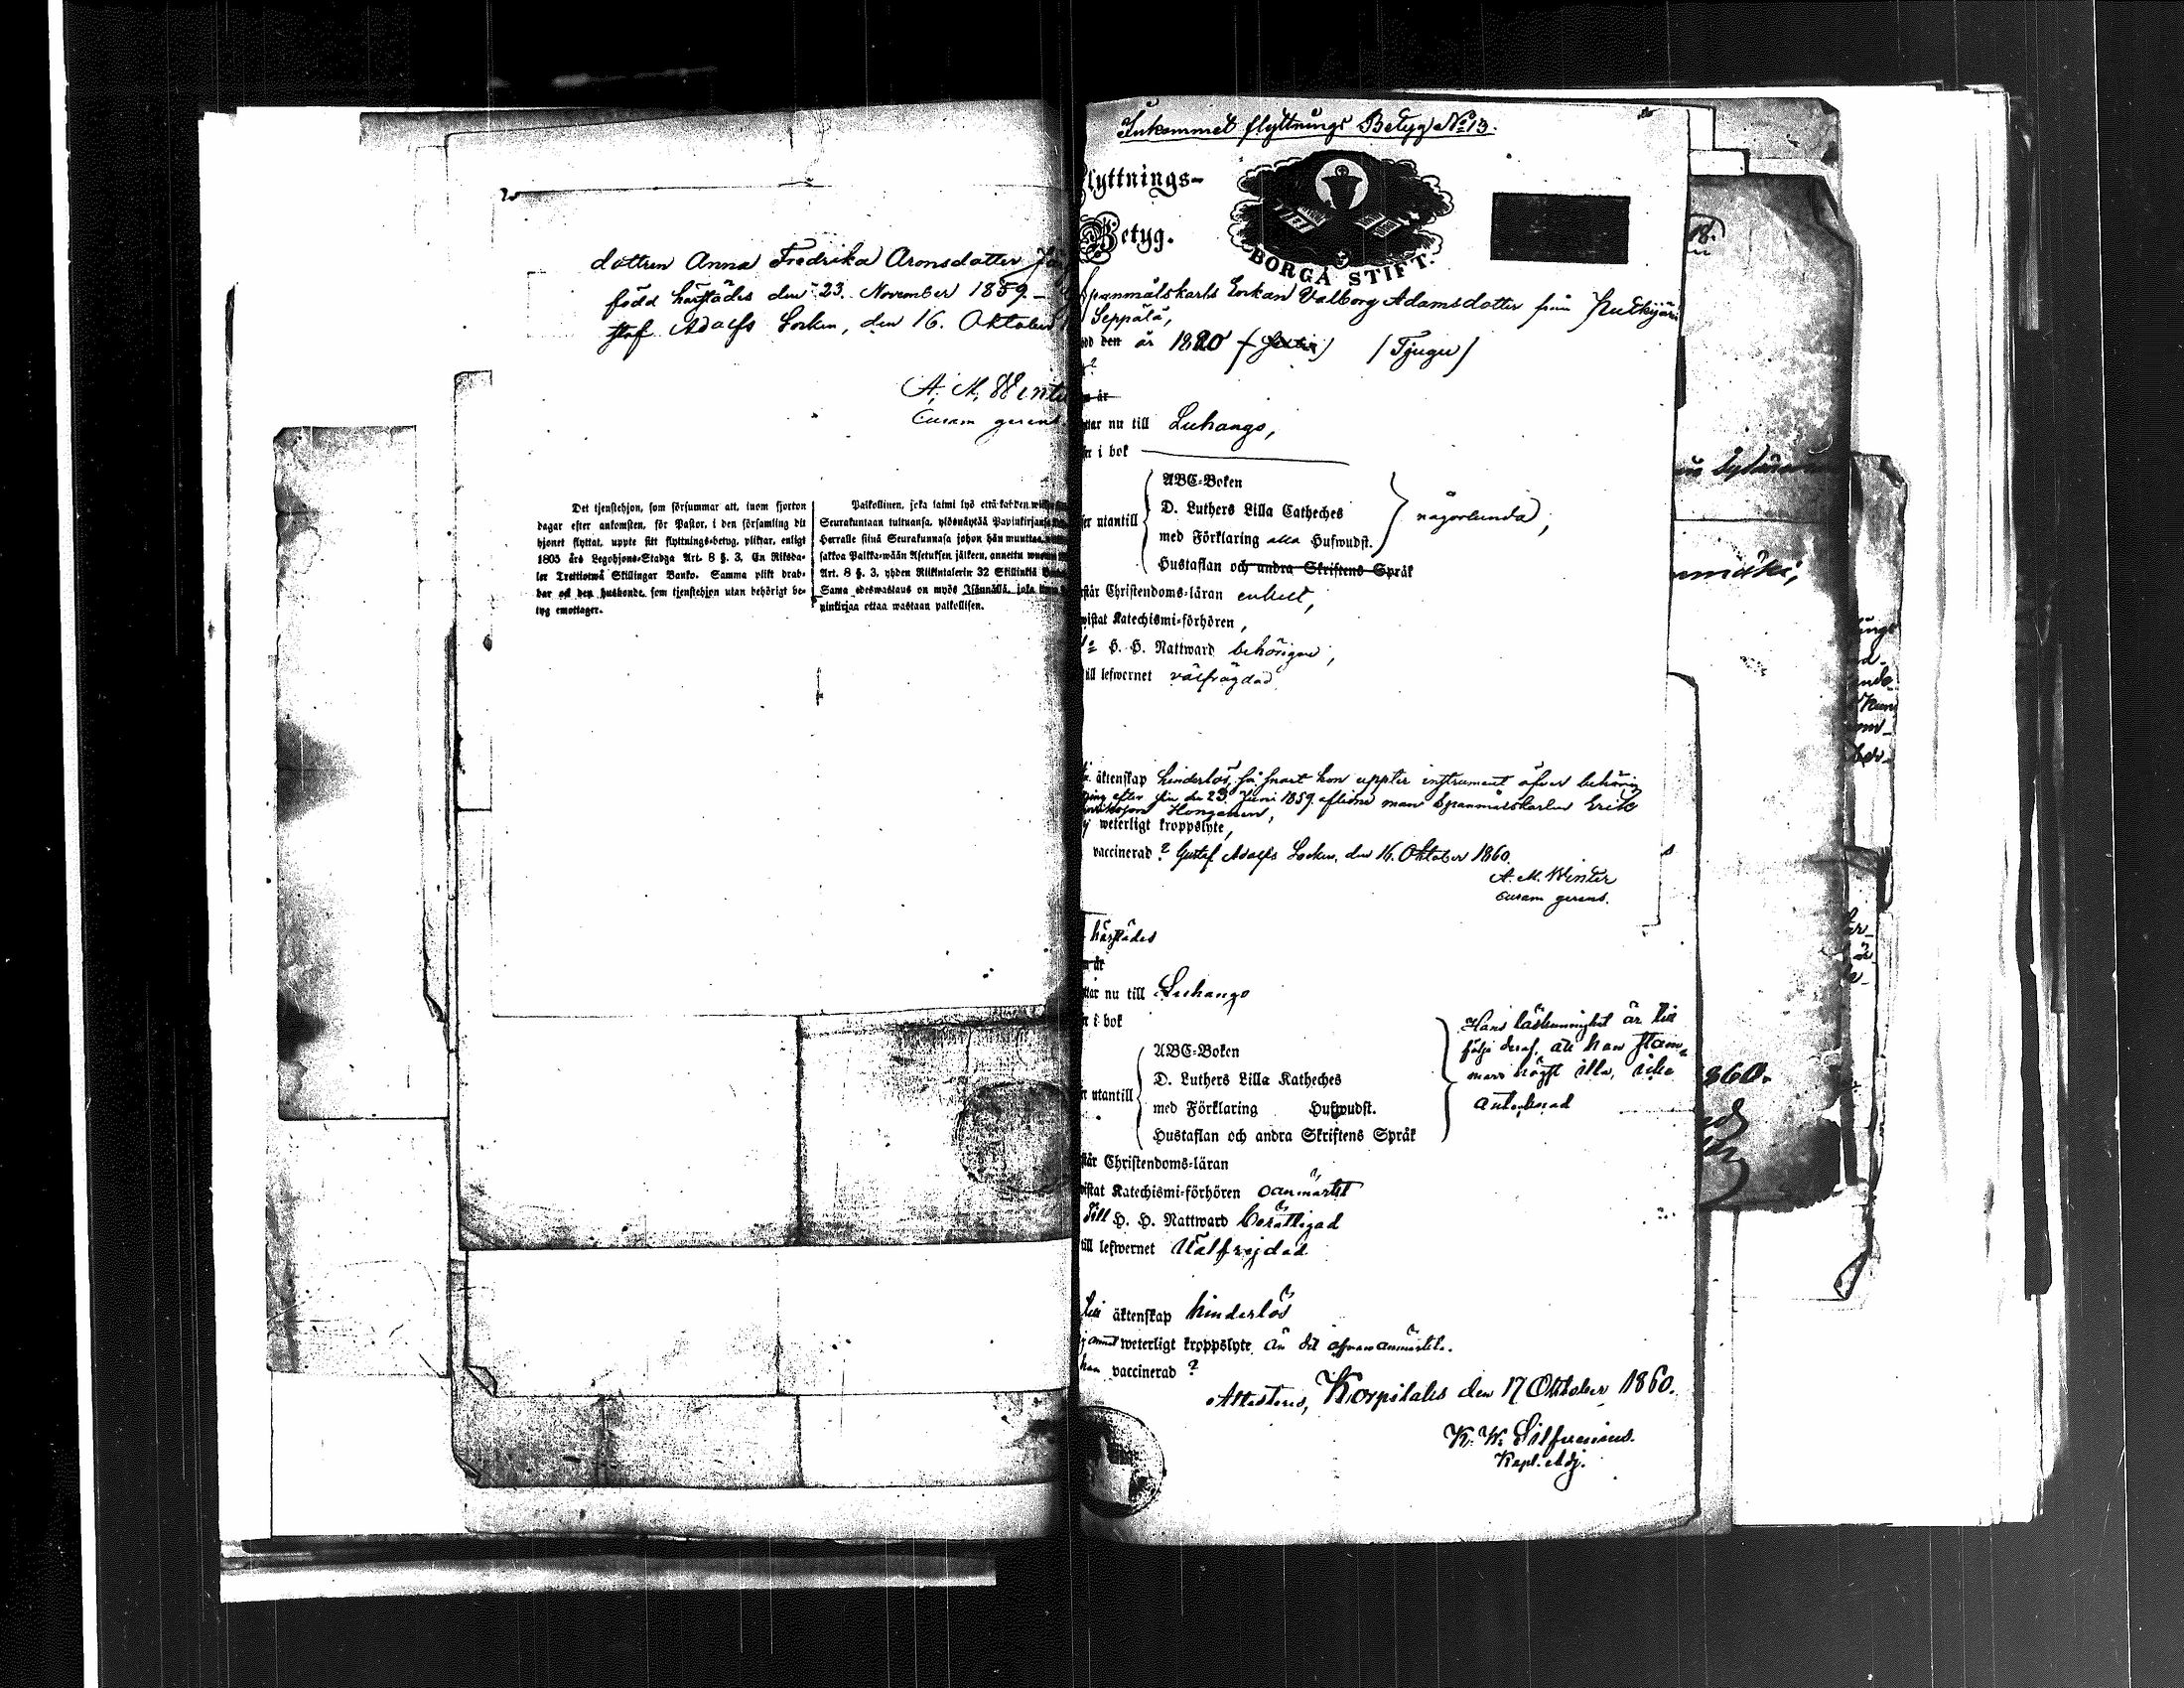 dottren Anna Fredrika Aronsdotter
född härstädes den 23. November 1859.
staf Adolfs Socken, den 16. Oktober
A. M. Winte
Curam gerens
Det tjenstehjon, som försummar att, inom fjorton
dagar efter ankomsten, för Pastor, i den församling dit
hjonet flyttat, uppte sitt flyttnings-betyg, pliktar, enligt
1805 års Legohjons-Stadga Art. 8 §. 3, En Riksda-
ler Trettiotwå Skillingar Banko. Samma plikt drab-
bar ock den husbonde, som tjenstehjon utan behörigt be-
tyg emottager.
Palkollinen, joka laimi lyö että kahden
Seurakuntaan tultuansa, ylösnäyttää Papinkirjansa
Herralle siinä Seurakunnasa johon hän muuttaa,
sakkoa Palkka-wään Asetuksen jälkeen, annettu wuonna
Art. 8 §. 3, yhden Riikintalerin 32 Skillinkiä
Sama edeswastaus on myös Isännällä, joka
pinkirjaa ottaa wastaan palkollisen.
Inkommet flyttnings Betyg No 13.
lyttnings-
Betyg.
BORGÅ STIFT.
Spanmålskarls Enkan Valborg Adamsdotter från
Seppälä,
den år 1820 /Tjugu/
år
nu till Luhango,
i bok
utantill
ABC-Boken
D. Luthers Lilla Catheches
med Förklaring alla Hufwudst.
Hustaflan och andra Skriftens Språk
någorlunda,
Christendoms-läran enkelt,
wistat Katechismi-förhören,
H. H. Nattward behörigen,
till lefwernet välfrägdad
äktenskap hinderlös, så snart hon uppter instrument öfver behörig
efter sin den 23. Juni 1859 aflidne man Spanmålskarlen Erik
Honganen,
weterligt kroppslyte,
vaccinerad? Gustaf Adolfs Socken, den 16. Oktober 1860.
A. M. Winter
curam gerens.
härstädes
år
nu till Luhango
i bok
utantill
ABC-Boken
D. Luthers Lilla Katheches
med Förklaring Hufwudst.
Hustaflan och andra Skriftens Språk
Hans läskunnighet är till
följe deraf, att han stam-
mar högst illa, icke
antecknad
Christendoms-läran
wistat Katechismi-förhören oanmärkt
Till H. H. Nattward berättigad
till lefwernet Välfrejdad
till äktenskap hinderlös
annat weterligt kroppslyte än det ofvan anmärkte.
han vaccinerad?
Attesteras, Korpilaks den 17 Oktober 1860.
K. W. Silfvenius.
Kapl. Adj.
18.
860.